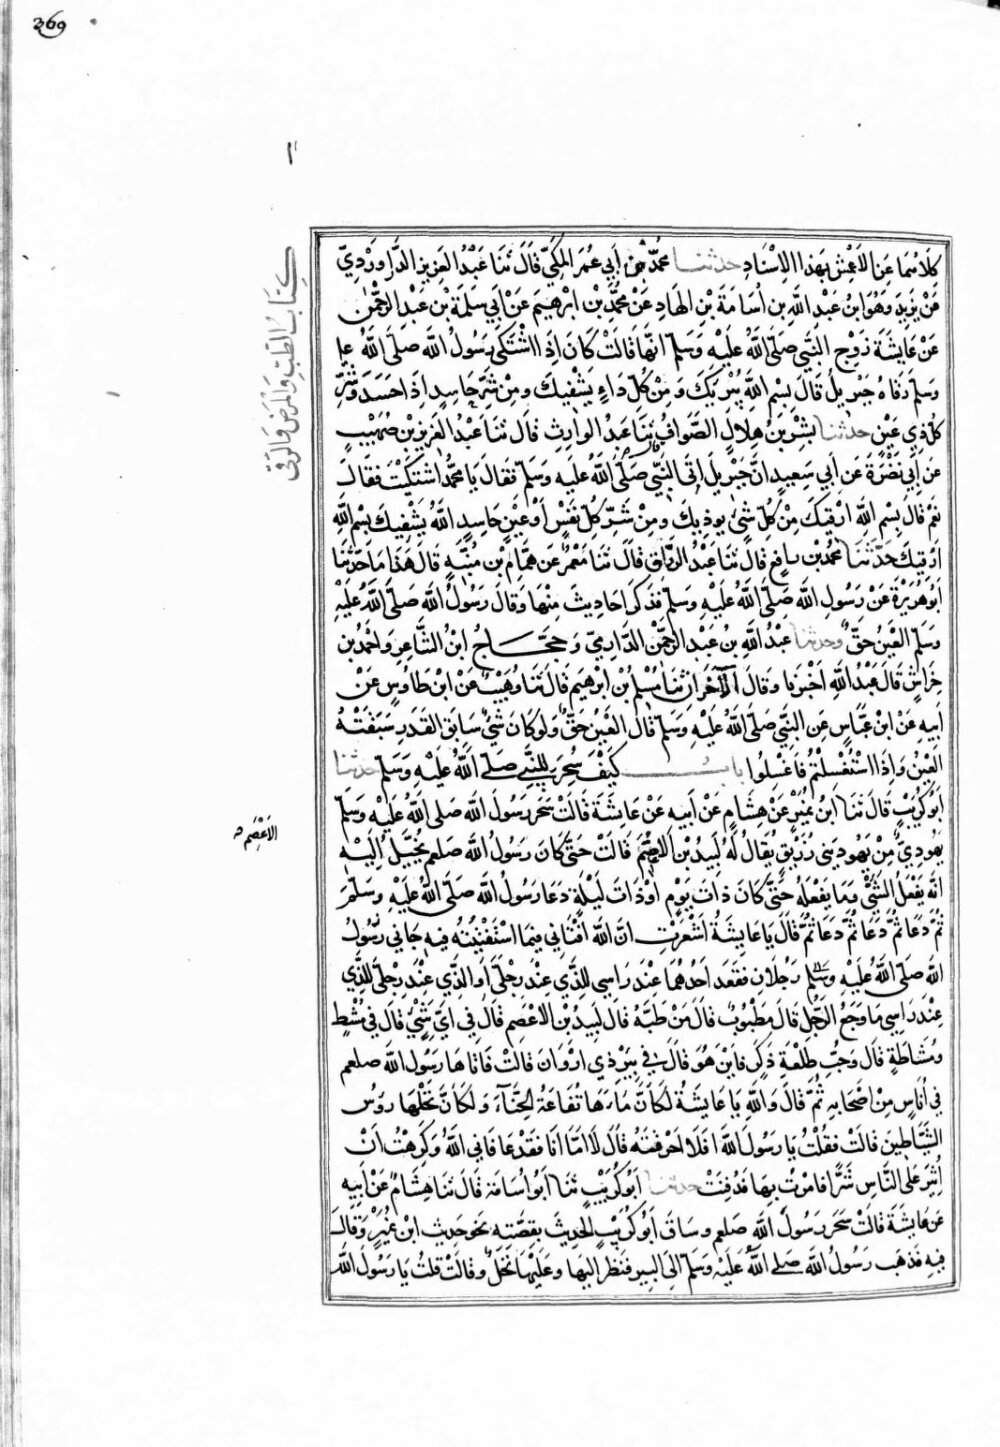 369
١
كتاب الطب والمرض والرقى
كلاهما عن الاعمش بهذا الاسناد حدثنا محمد بن أبي عمر المكي قال ثنا عبد العزيز الدراوردي
عن يزيد وهو ابن عبد الله بن اسامة بن الهاد عن محمد بن ابرهيم عن أبي سلمة بن عبد الرحمن
عن عايشة زوج النبي صلى الله عليه وسلم انها قالت كان اذا اشتكى رسول الله صلى الله عليه
وسلم رقاه جبريل قال بسم الله يبريك ومن كل داء يشفيك ومن شر حاسد اذا حسد وشر
كل ذي عين حدثنا بشر بن هلال الصواف ثنا عبد الوارث قال ثنا عبد العزيز بن صهيب
عن أبي نضرة عن أبي سعيد ان جبريل اتى النبي صلى الله عليه وسلم فقال يا محمد اشتكيت فقال
نعم قال بسم الله ارقيك من كل شيء يوذيك ومن شر كل نفس أو عين حاسد الله يشفيك بسم الله
ارقيك حدثنا محمد بن رافع قال ثنا عبد الرزاق قال ثنا معمر عن همام بن منبه قال هذا ما حدثنا
أبو هريرة عن رسول الله صلى الله عليه وسلم فذكر احاديث منها وقال رسول الله صلى الله عليه
وسلم العين حق وحدثنا عبد الله بن عبد الرحمن الدارمي وحجاج ابن الشاعر واحمد بن
خراش قال عبد الله اخبرنا وقال الآخران ثنا مسلم بن ابرهيم قال ثنا وهيب عن ابن طاوس عن
ابيه عن ابن عباس عن النبي صلى الله عليه وسلم قال العين حق ولو كان شيء سابق القدر سبقته
العين واذا استغسلتم فاغسلوا باب كيف سحر النبي صلى الله عليه وسلم حدثنا
أبو كريب قال ثنا ابن نمير عن هشام عن أبيه عن عايشة قالت سحر رسول الله صلى الله عليه وسلم
يهودي من يهود بني زريق يقال له لبيد بن الاعصم قالت حتى كان رسول الله صلعم يخيل اليه
الاعصم
انه يفعل الشي وما يفعله حتى كان ذات يوم أو ذات ليلة دعا رسول الله صلى الله عليه وسلم
ثم دعا ثم دعا ثم دعا ثم قال يا عايشة اشعرت ان الله افتاني فيما استفتيته فيه جاني رسول
الله صلى الله عليه وسلم رجلان فقعد احدهما عند راسي للذي عند رجلي أو الذي عند رجلي للذي
عند راسي ما وجع الرجل قال مطبوب قال من طبه قال لبيد بن الاعصم قال في اي شيء قال في مشط
ومشاطة قال وجب طلعة ذكر فاين هو قال في بير ذي اروان قالت فاتاها رسول الله صلعم
في أناس من اصحابه ثم قال والله يا عايشة لكان ماءها نقاعة الحناء ولكان نخلها روس
الشياطين قالت فقلت يا رسول الله افلا احرقته قال لا اما انا فقد عافاني الله وكرهت ان
أثير على الناس شرا فامرت بها فدفنت حدثنا أبو كريب ثنا أبو اسامة قال ثنا هشام عن أبيه
عن عايشة قالت سحر رسول الله صلعم وساق أبو كريب الحديث بقصته نحو حديث ابن نمير وقال
فيه فذهب رسول الله صلى الله عليه وسلم الى البير فنظر اليها وعليها نخل وقالت قلت يا رسول الله